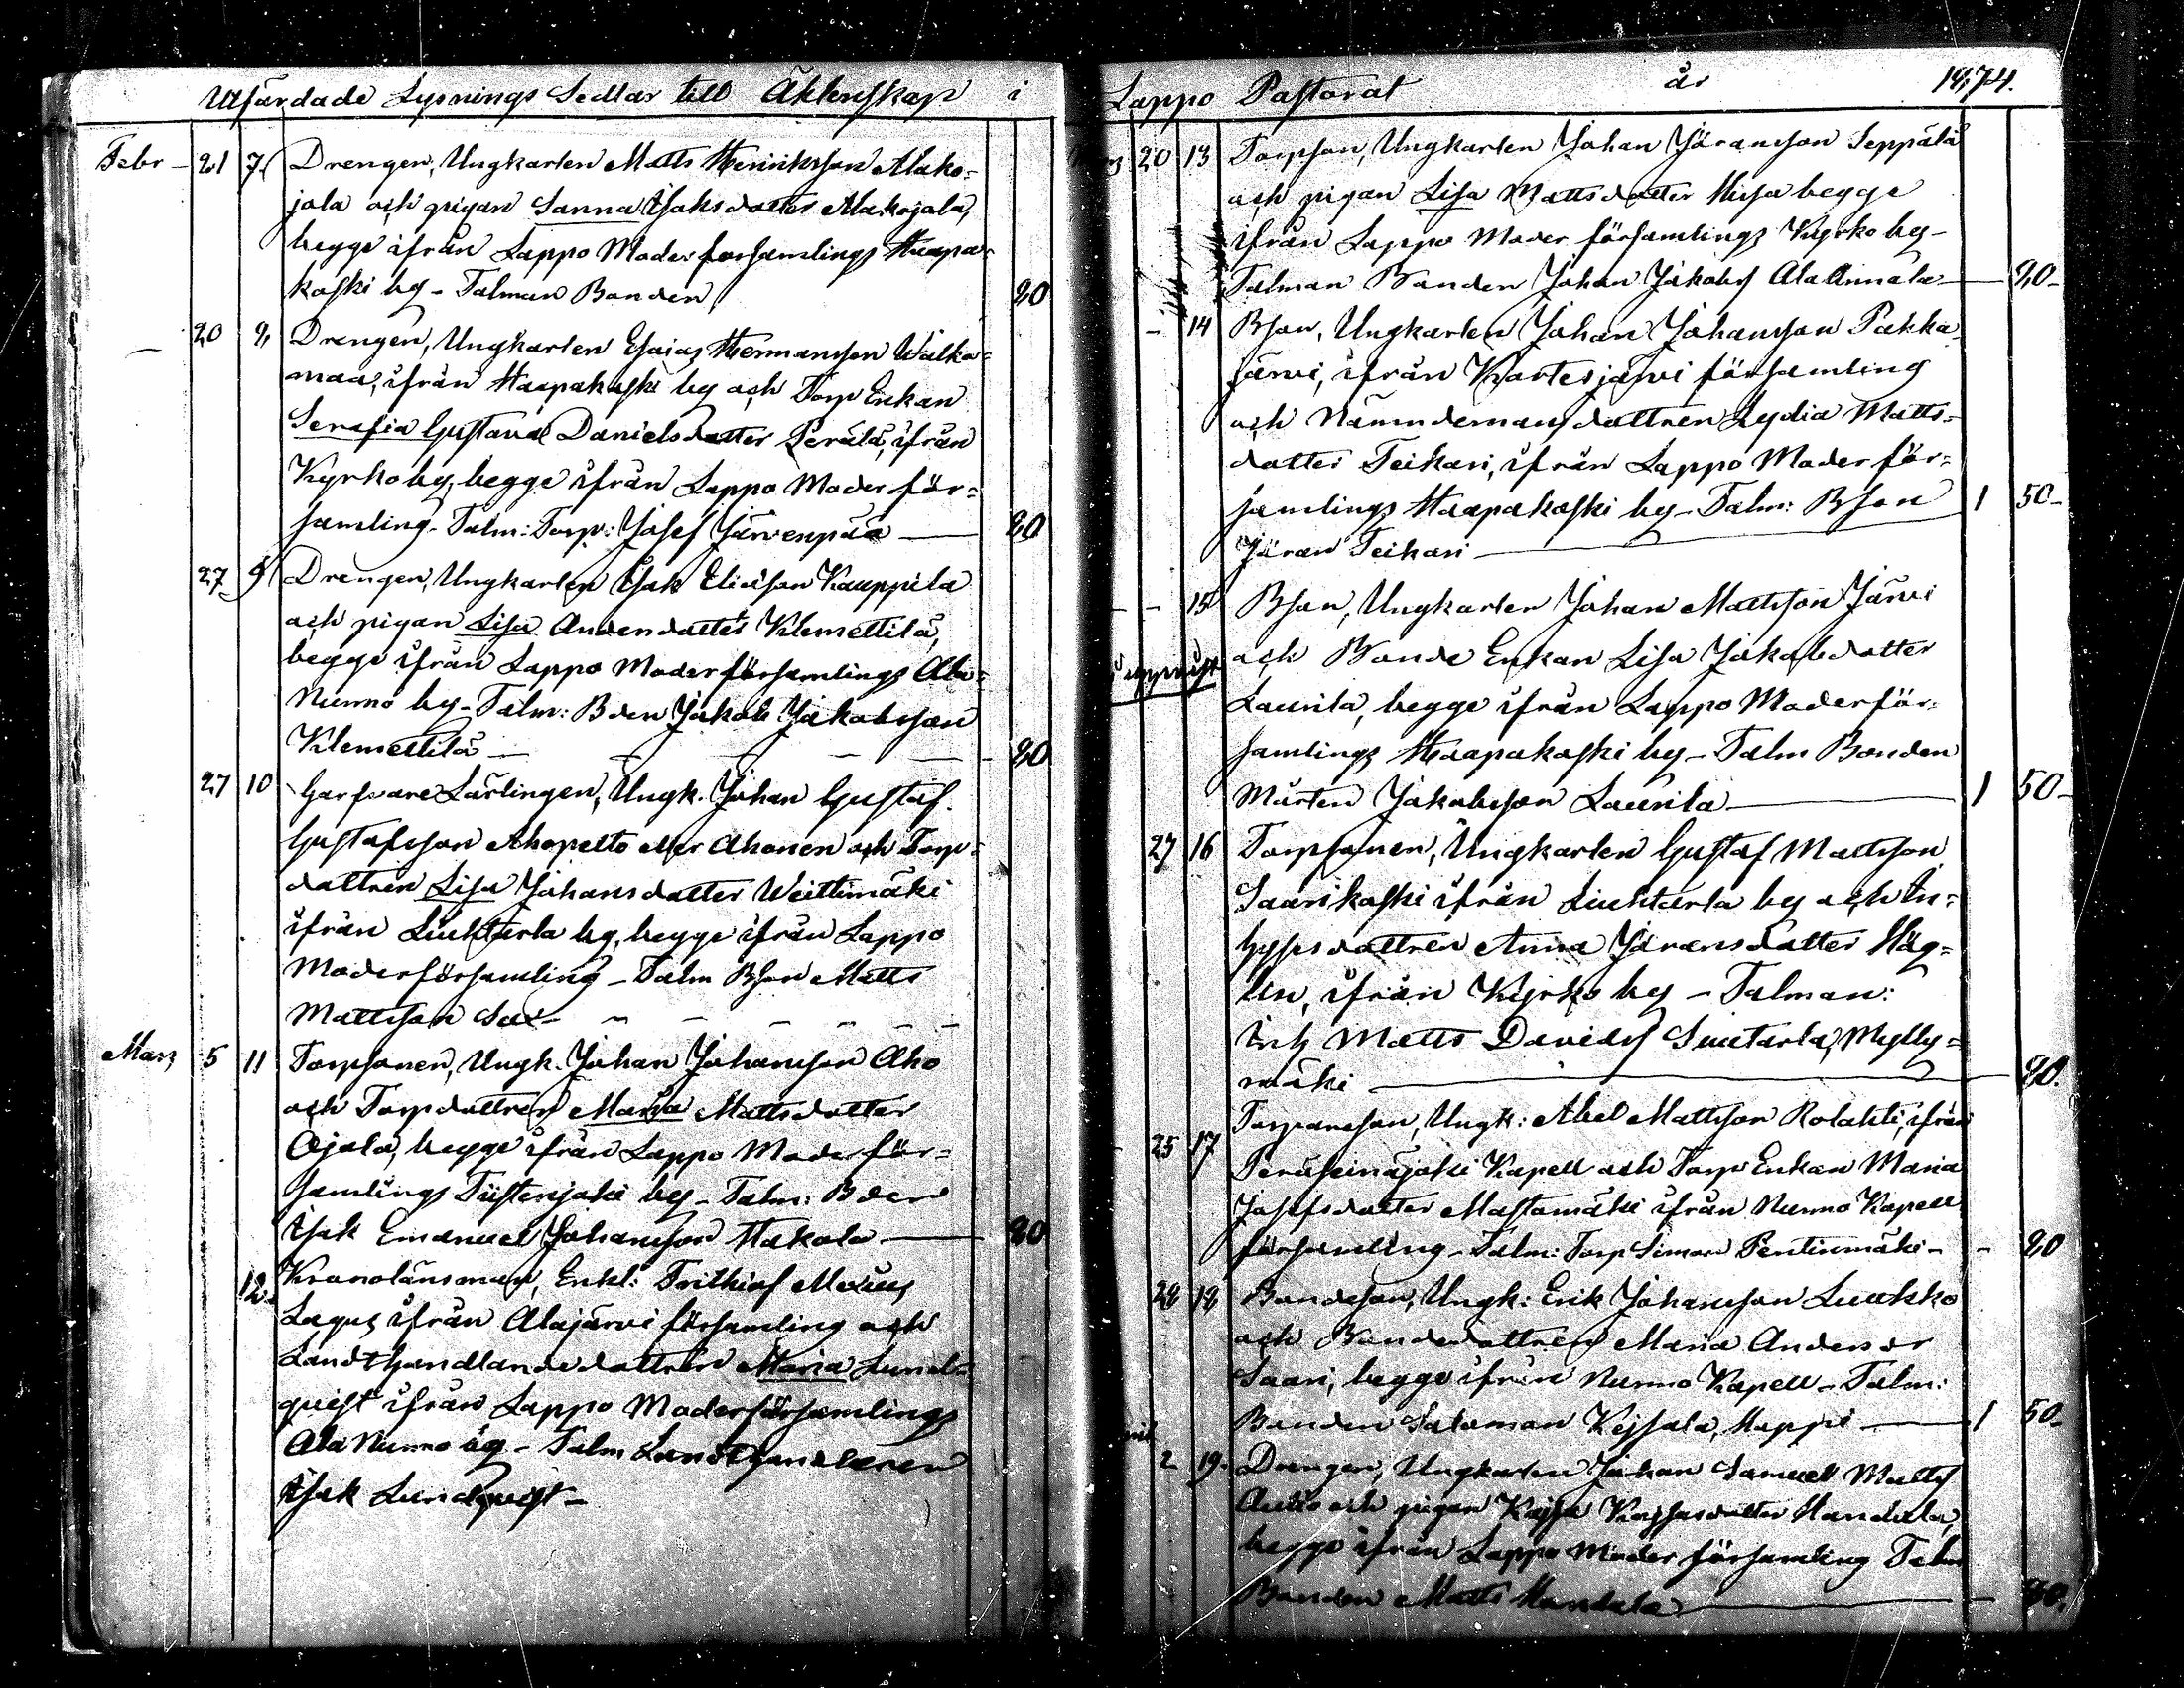 Utfärdade Lysnings Sedlar till Äktenskap i
Febr - 21 7. Drengen, Ungkarlen Matts Henriksson Alako=
jola och pigan Sanna Isaksdotter Alakojola,
begge ifrån Lappo Moderförsamlings Haapa=
koski by - Talman Bonden 80
- 20 8, Drengen, Ungkarlen Esaias Hermansson Walka=
maa, ifrån Haapakoski by och Torp Enkan
Serafia Gustava Danielsdotter Perälä, ifrån
Kyrkoby, begge ifrån Lappo Moder för=
samling - Talm: Torp: Josef Järvenpää 80
27 9 Drengen, Ungkarlen Isak Eliasson Kauppila
och pigan Lisa Andersdotter Klemettilä,
begge ifrån Lappo Moderförsamlings Ala=
Nurmo by - Talm: Bden Jakob Jakobsson
Klemettilä 80
27 10 Garfvare Lärlingen, Ungk. Johan Gustaf
Gustafsson Ahopelto eller Ahonen och Torp=
dottren Lisa Johansdotter Weittimäki
ifrån Liuhtarla by, begge ifrån Lappo
Moderförsamling - Talm Bson Matts
Mattsson
Mars 5 11 Torpsonen, Ungk. Johan Johansson Aho
och Torpdottren Maria Mattsdotter
Ojala, begge ifrån Lappo Moderför=
samlings Tiistenjoki by - Talm: Bden
Isak Emanuel Johansson Hakola 80
12. Kronolänsman, Enkl: Frithiof
Lagus ifrån Alajärvi församling och
Landthandlandedottren Maria Lund=
quist ifrån Lappo Moderförsamlings
Ala Nurmo by - Talm Landthandlaren
Isak Lundquist -
Lappo Pastorat år 1874.
20 13 Torpson, Ungkarlen Johan Jöransson Seppälä
och pigan Lisa Mattsdotter Hirsa begge
ifrån Lappo Moder församlings Kyrkoby -
Talman Bonden Johan Jakobs Ala Annala 80-
- 14 Bson, Ungkarlen Johan Johansson Pakka
järvi, ifrån Kortesjärvi församling
och Nämndemansdottren Lydia Matts=
dotter Teikari, ifrån Lappo Moder för=
samlings Haapakoski by - Talm: Bson 1 50-
Jöran Teikari
- - 15 Bson, Ungkarlen Johan Mattsson Järvi
och Bonde Enkan Lisa Jakobsdotter
Laurila, begge ifrån Lappo Moderför=
samlings Haapakoski by - Talm Bonden
Mårten Jakobsson Laurila 1 50-
27 16 Torpsonen, Ungkarlen Gustaf Mattsson
Saarikoski ifrån Liuhtarla by och In=
hysesdottren Anna Jöransdotter Häg=
lin, ifrån Kyrko by - Talman:
Inh Matts Davids Liuhtarla, Mylly=
mäki 80.
25 17 Torpareson, Ungk: Abel Mattsson Rolahti, ifrån
Peräseinäjoki Kapell och Torp Enkan Maria
Josefsdotter Mastamäki ifrån Nurmo Kapell
församling - Talm: Torp Simon Penttinmäki - - 80
28 18 Bondeson, Ungk: Erik Johansson Luukko
och Bondedottren Maria Anders dr
Saari, begge ifrån Nurmo Kapell - Talm:
Bonden Salomon Kejsala, Happi 1 50-
2 19. Drengen, Ungkarlen Johan Samuel Matts
Autio och pigan Kajsa Kajsasdotter Handela,
begge ifrån Lappo Moder församling Talm
Bonden Matts Handela - 80.